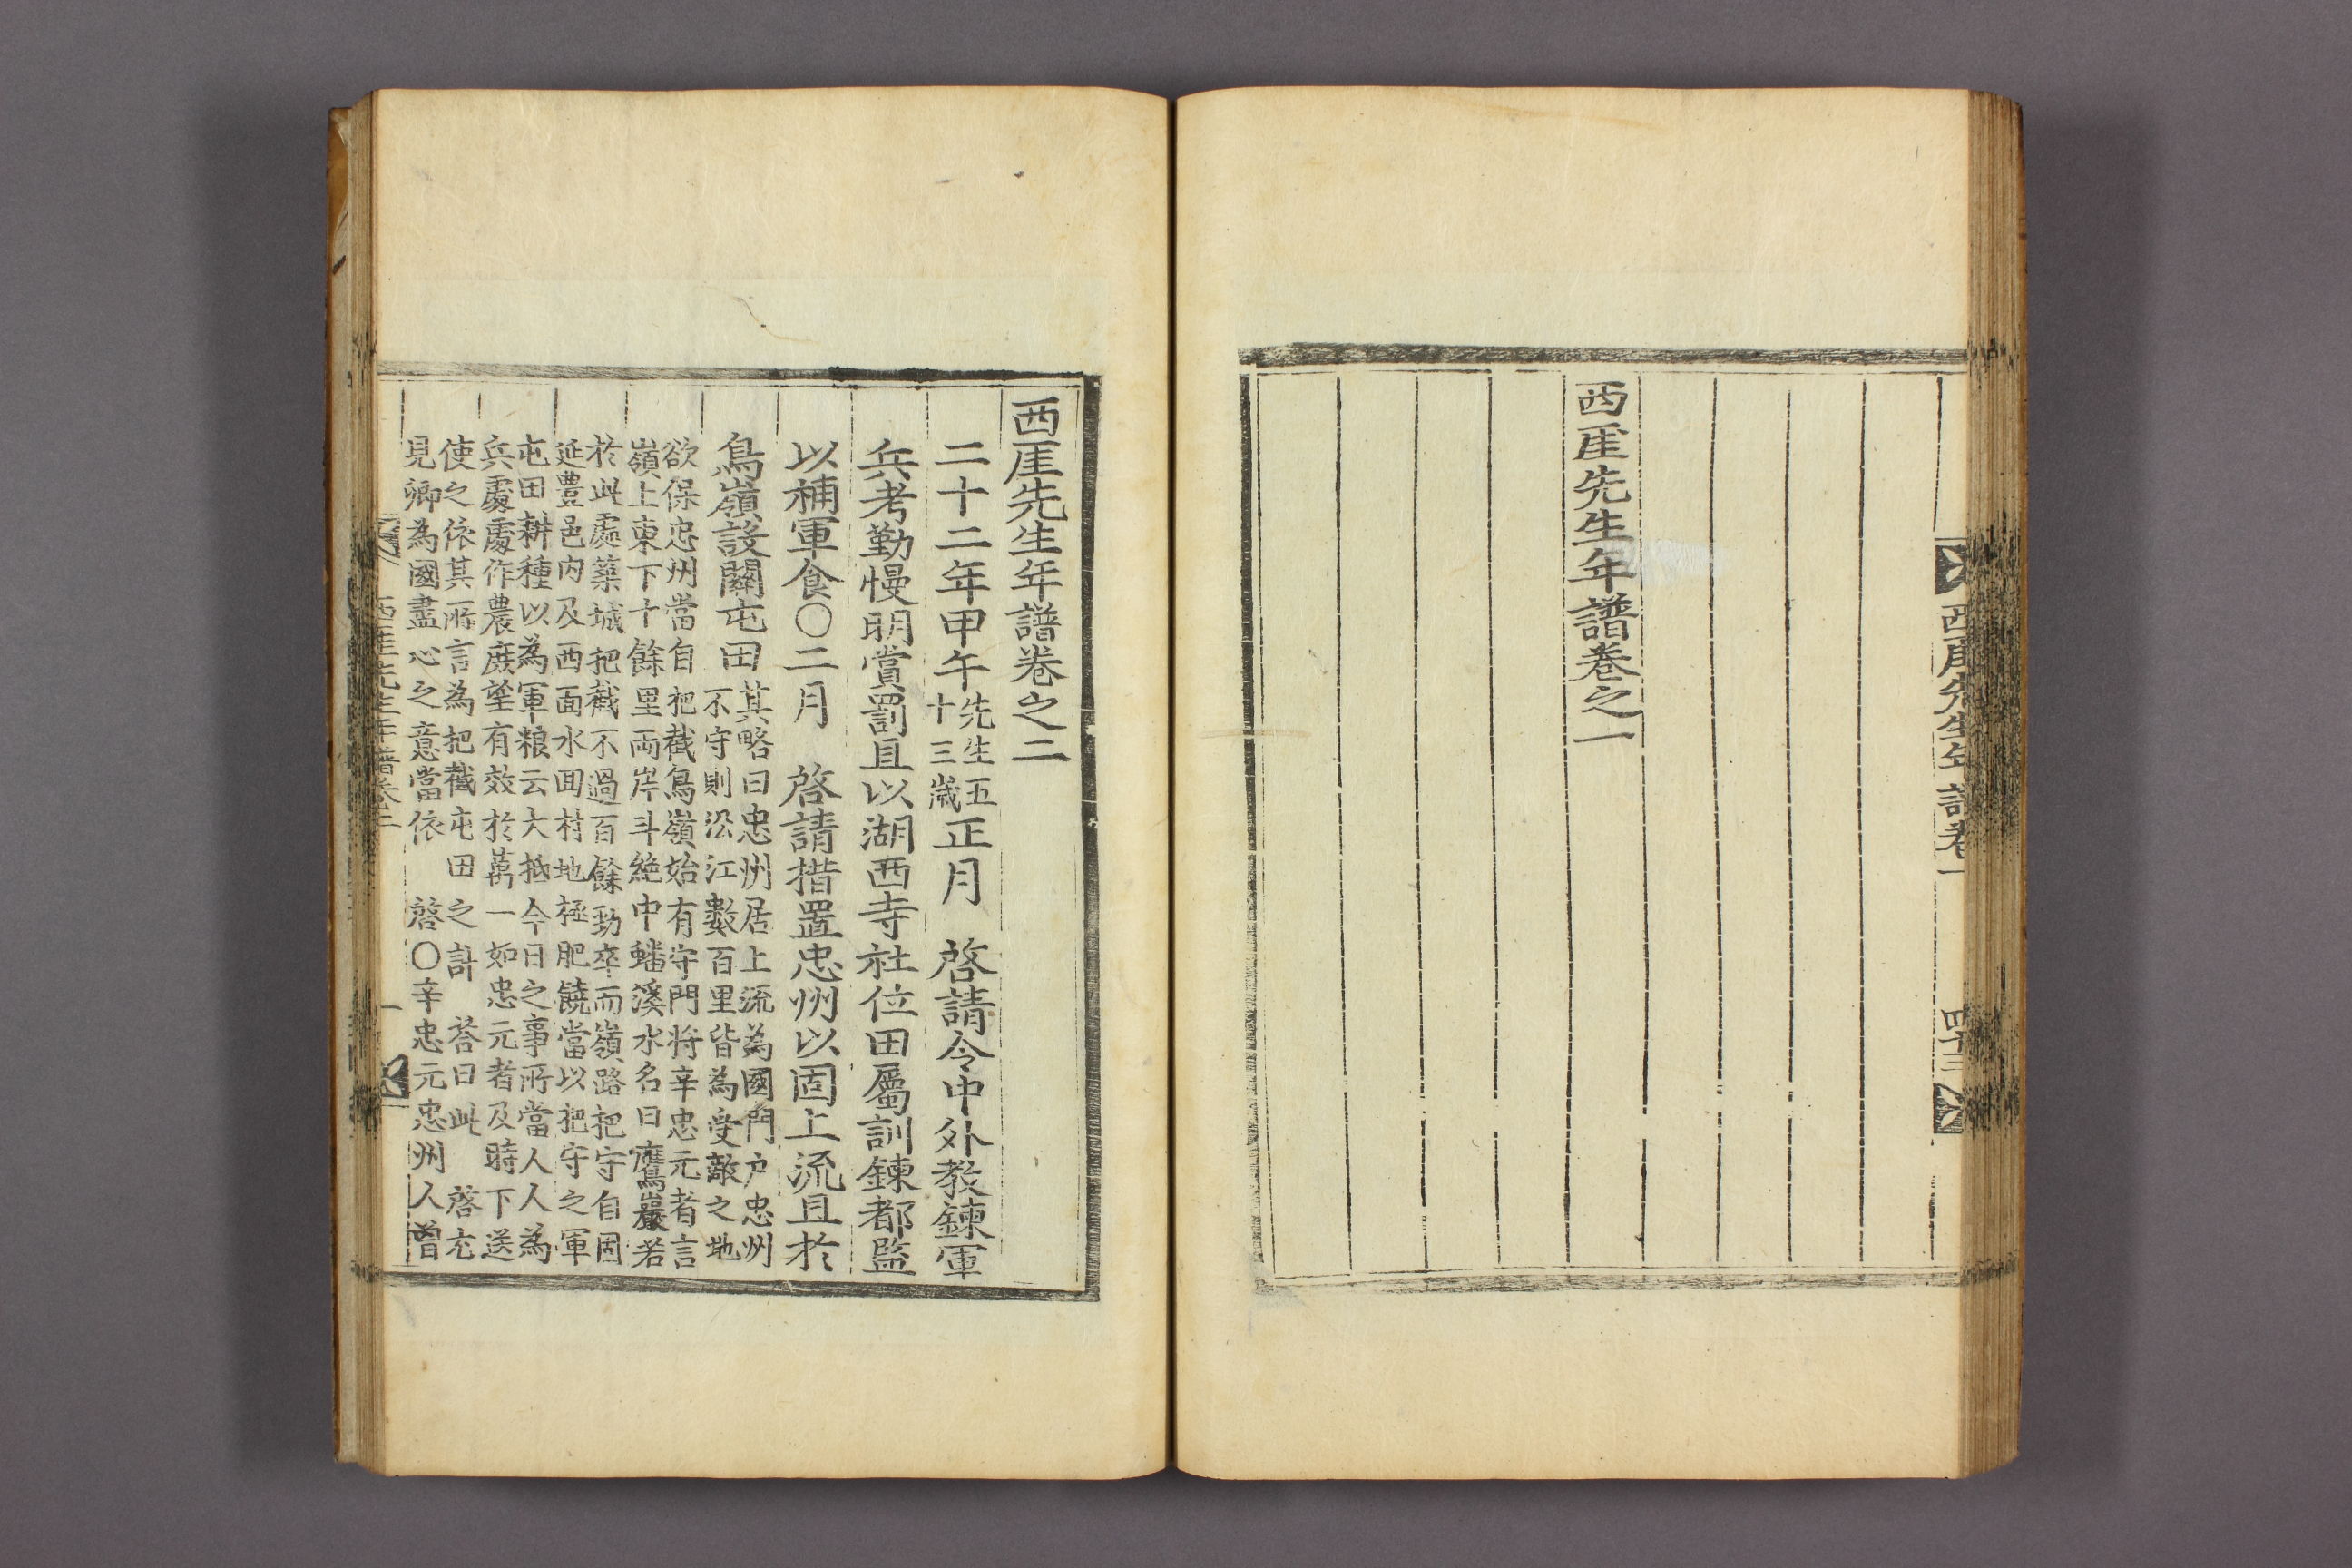 西厓先生年譜卷一
四十三
西厓先生年譜卷之一
西厓先生年譜卷之二
二十二年甲午先生五十三歲正月 啓請令中外敎鍊軍
兵考勤慢明賞罰且以湖西寺社位田屬訓鍊都監
以補軍食○二月 啓請措置忠州以固上流且於
鳥嶺設關屯田
其略曰忠州居上流為國門户忠州
不守則沿江數百里皆為受敵之地
欲保忠州當自把截鳥嶺始有守門將辛忠元者言
嶺上東下十餘里兩岸斗絶中蟠溪水名曰鷹巖若
於此處築城把截不過百餘勁卒而嶺路把守自固
延豊邑内及西面水回村地極肥饒當以把守之軍
屯田耕種以為軍粮云大抵今日之事所當人人為
兵處處作農庶望有效於萬一如忠元者及時下送
使之依其所言為把截屯田之計 荅曰此 啓尤
見卿為國盡心之意當依 啓○辛忠元忠州人曽
西厓先生年譜卷二
一